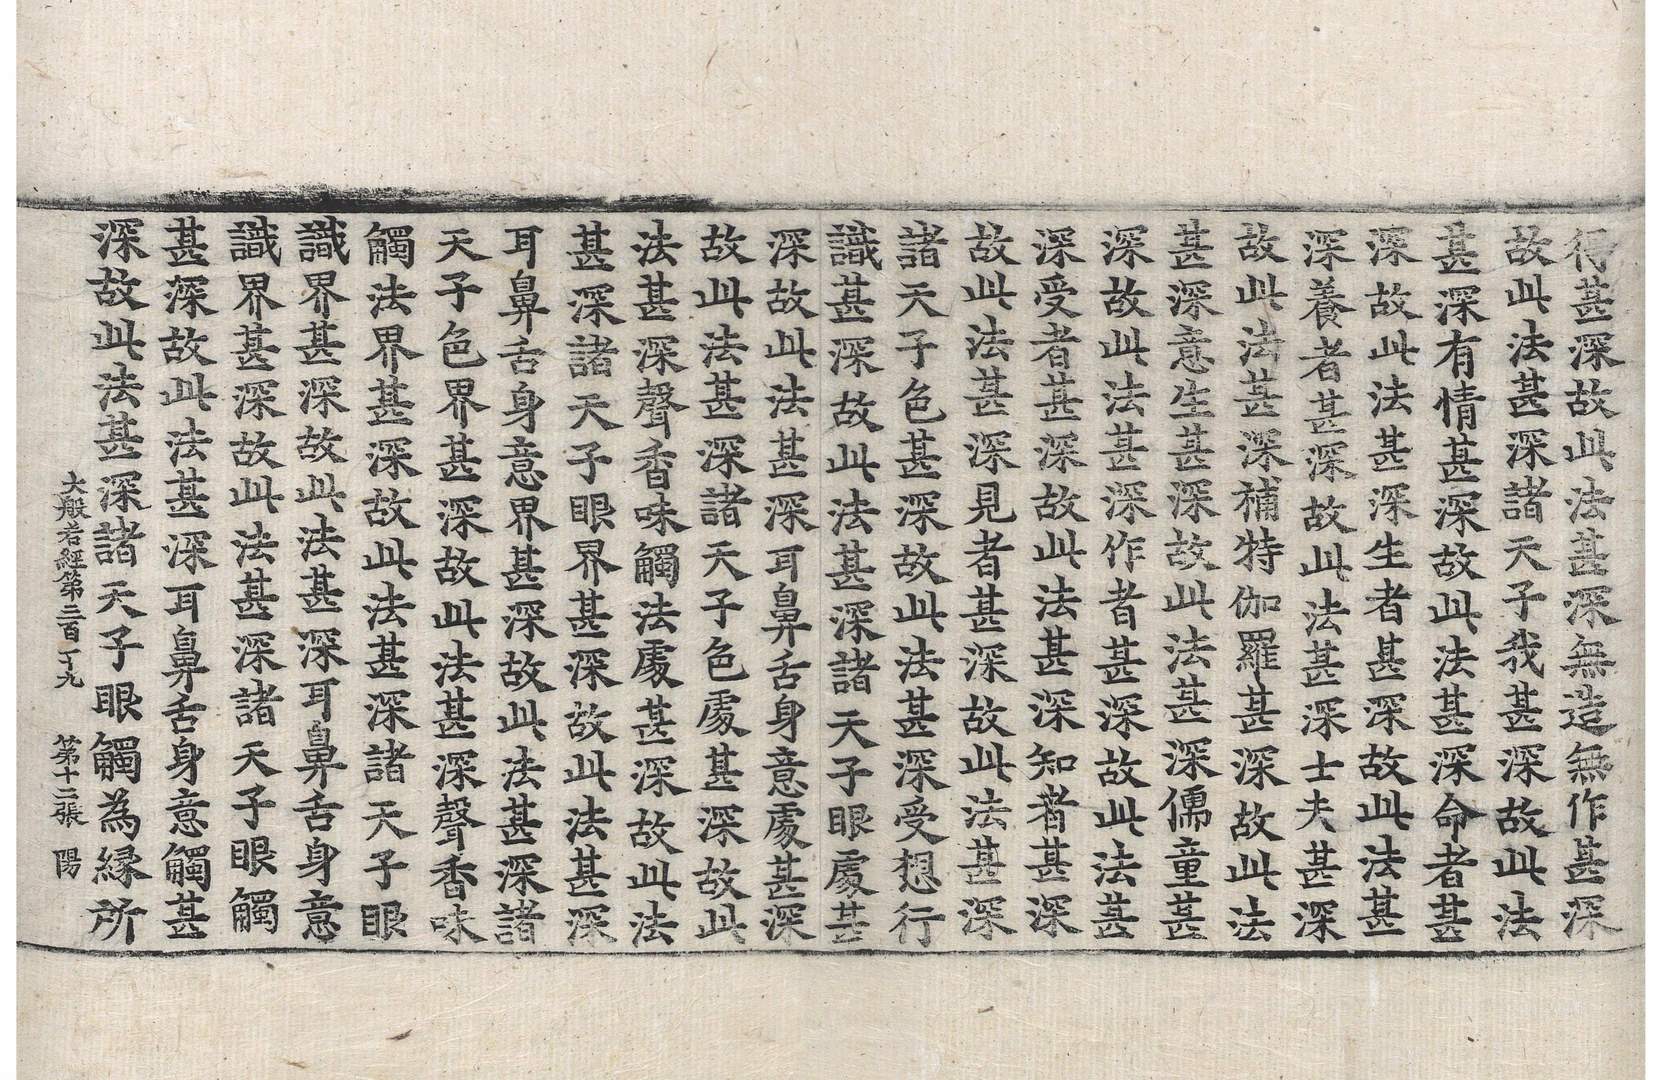 得甚深故此法甚深無造無作甚深
故此法甚深諸天子我甚深故此法
甚深有情甚深故此法甚深命者甚
深故此法甚深生者甚深故此法甚
深養者甚深故此法甚深士夫甚深
故此法甚深補特伽羅甚深故此法
甚深意生甚深故此法甚深儒童甚
深故此法甚深作者甚深故此法甚
深受者甚深故此法甚深知者甚深
故此法甚深見者甚深故此法甚深
諸天子色甚深故此法甚深受想行
識甚深故此法甚深諸天子眼處甚
深故此法甚深耳鼻舌身意處甚深
故此法甚深諸天子色處甚深故此
法甚深聲香味觸法處甚深故此法
甚深諸天子眼界甚深故此法甚深
耳鼻舌身意界甚深故此法甚深諸
天子色界甚深故此法甚深聲香味
觸法界甚深故此法甚深諸天子眼
識界甚深故此法甚深耳鼻舌身意
識界甚深故此法甚深諸天子眼觸
甚深故此法甚深耳鼻舌身意觸甚
深故此法甚深諸天子眼觸為緣所
大般若經第三百十九 第十二張 陽